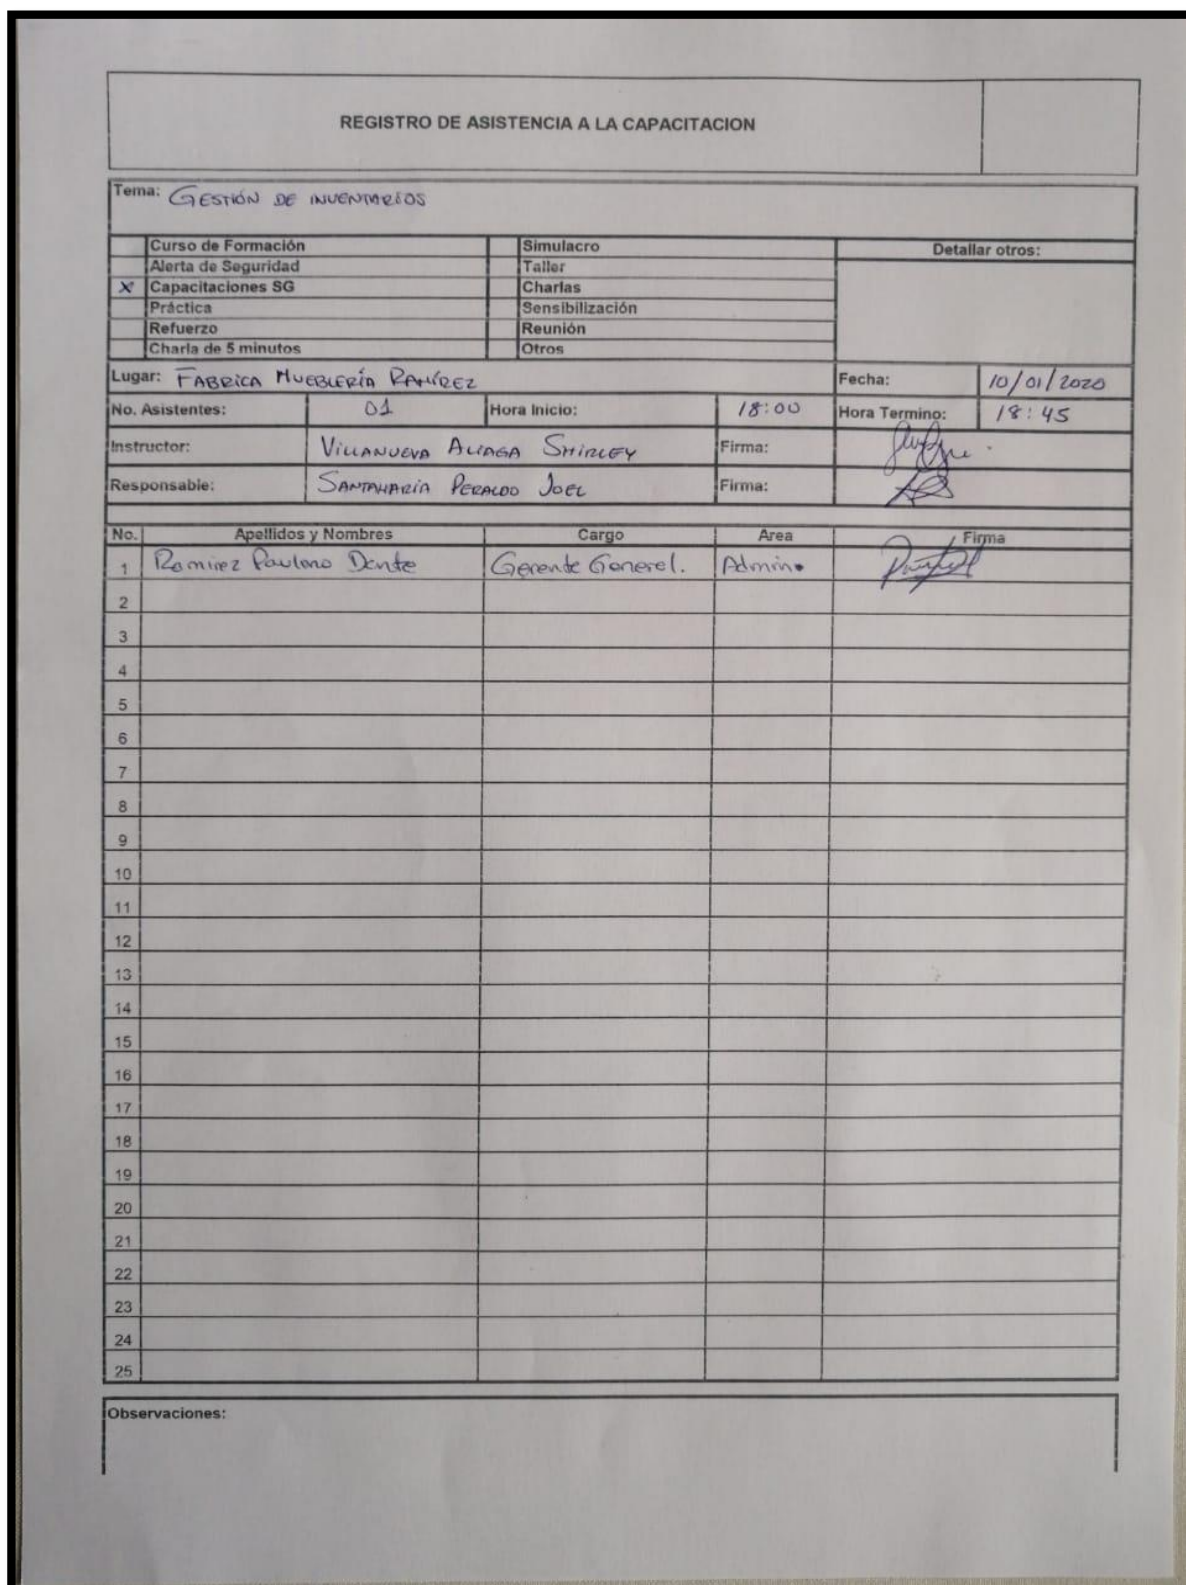 REGISTRO DE ASISTENCIA A LA CAPACITACION
Tema: GESTIÓN DE INVENTARIOS
Curso de Formación Simulacro Detallar otros:
Alerta de Seguridad Taller
X Capacitaciones SG Charlas
Práctica Sensibilización
Refuerzo Reunión
Charla de 5 minutos Otros
Lugar: FABRICA MUEBLERÍA RAMÍREZ Fecha: 10/01/2020
No. Asistentes: 01 Hora Inicio: 18:00 Hora Termino: 18:45
Instructor: VILLANUEVA ALIAGA SHIRLEY Firma:
Responsable: SANTAMARÍA PERALDO JOEL Firma:
No. Apellidos y Nombres Cargo Area Firma
1 Ramirez Paulino Dante Gerente General. Admin.
2
3
4
5
6
7
8
9
10
11
12
13
14
15
16
17
18
19
20
21
22
23
24
25
Observaciones: